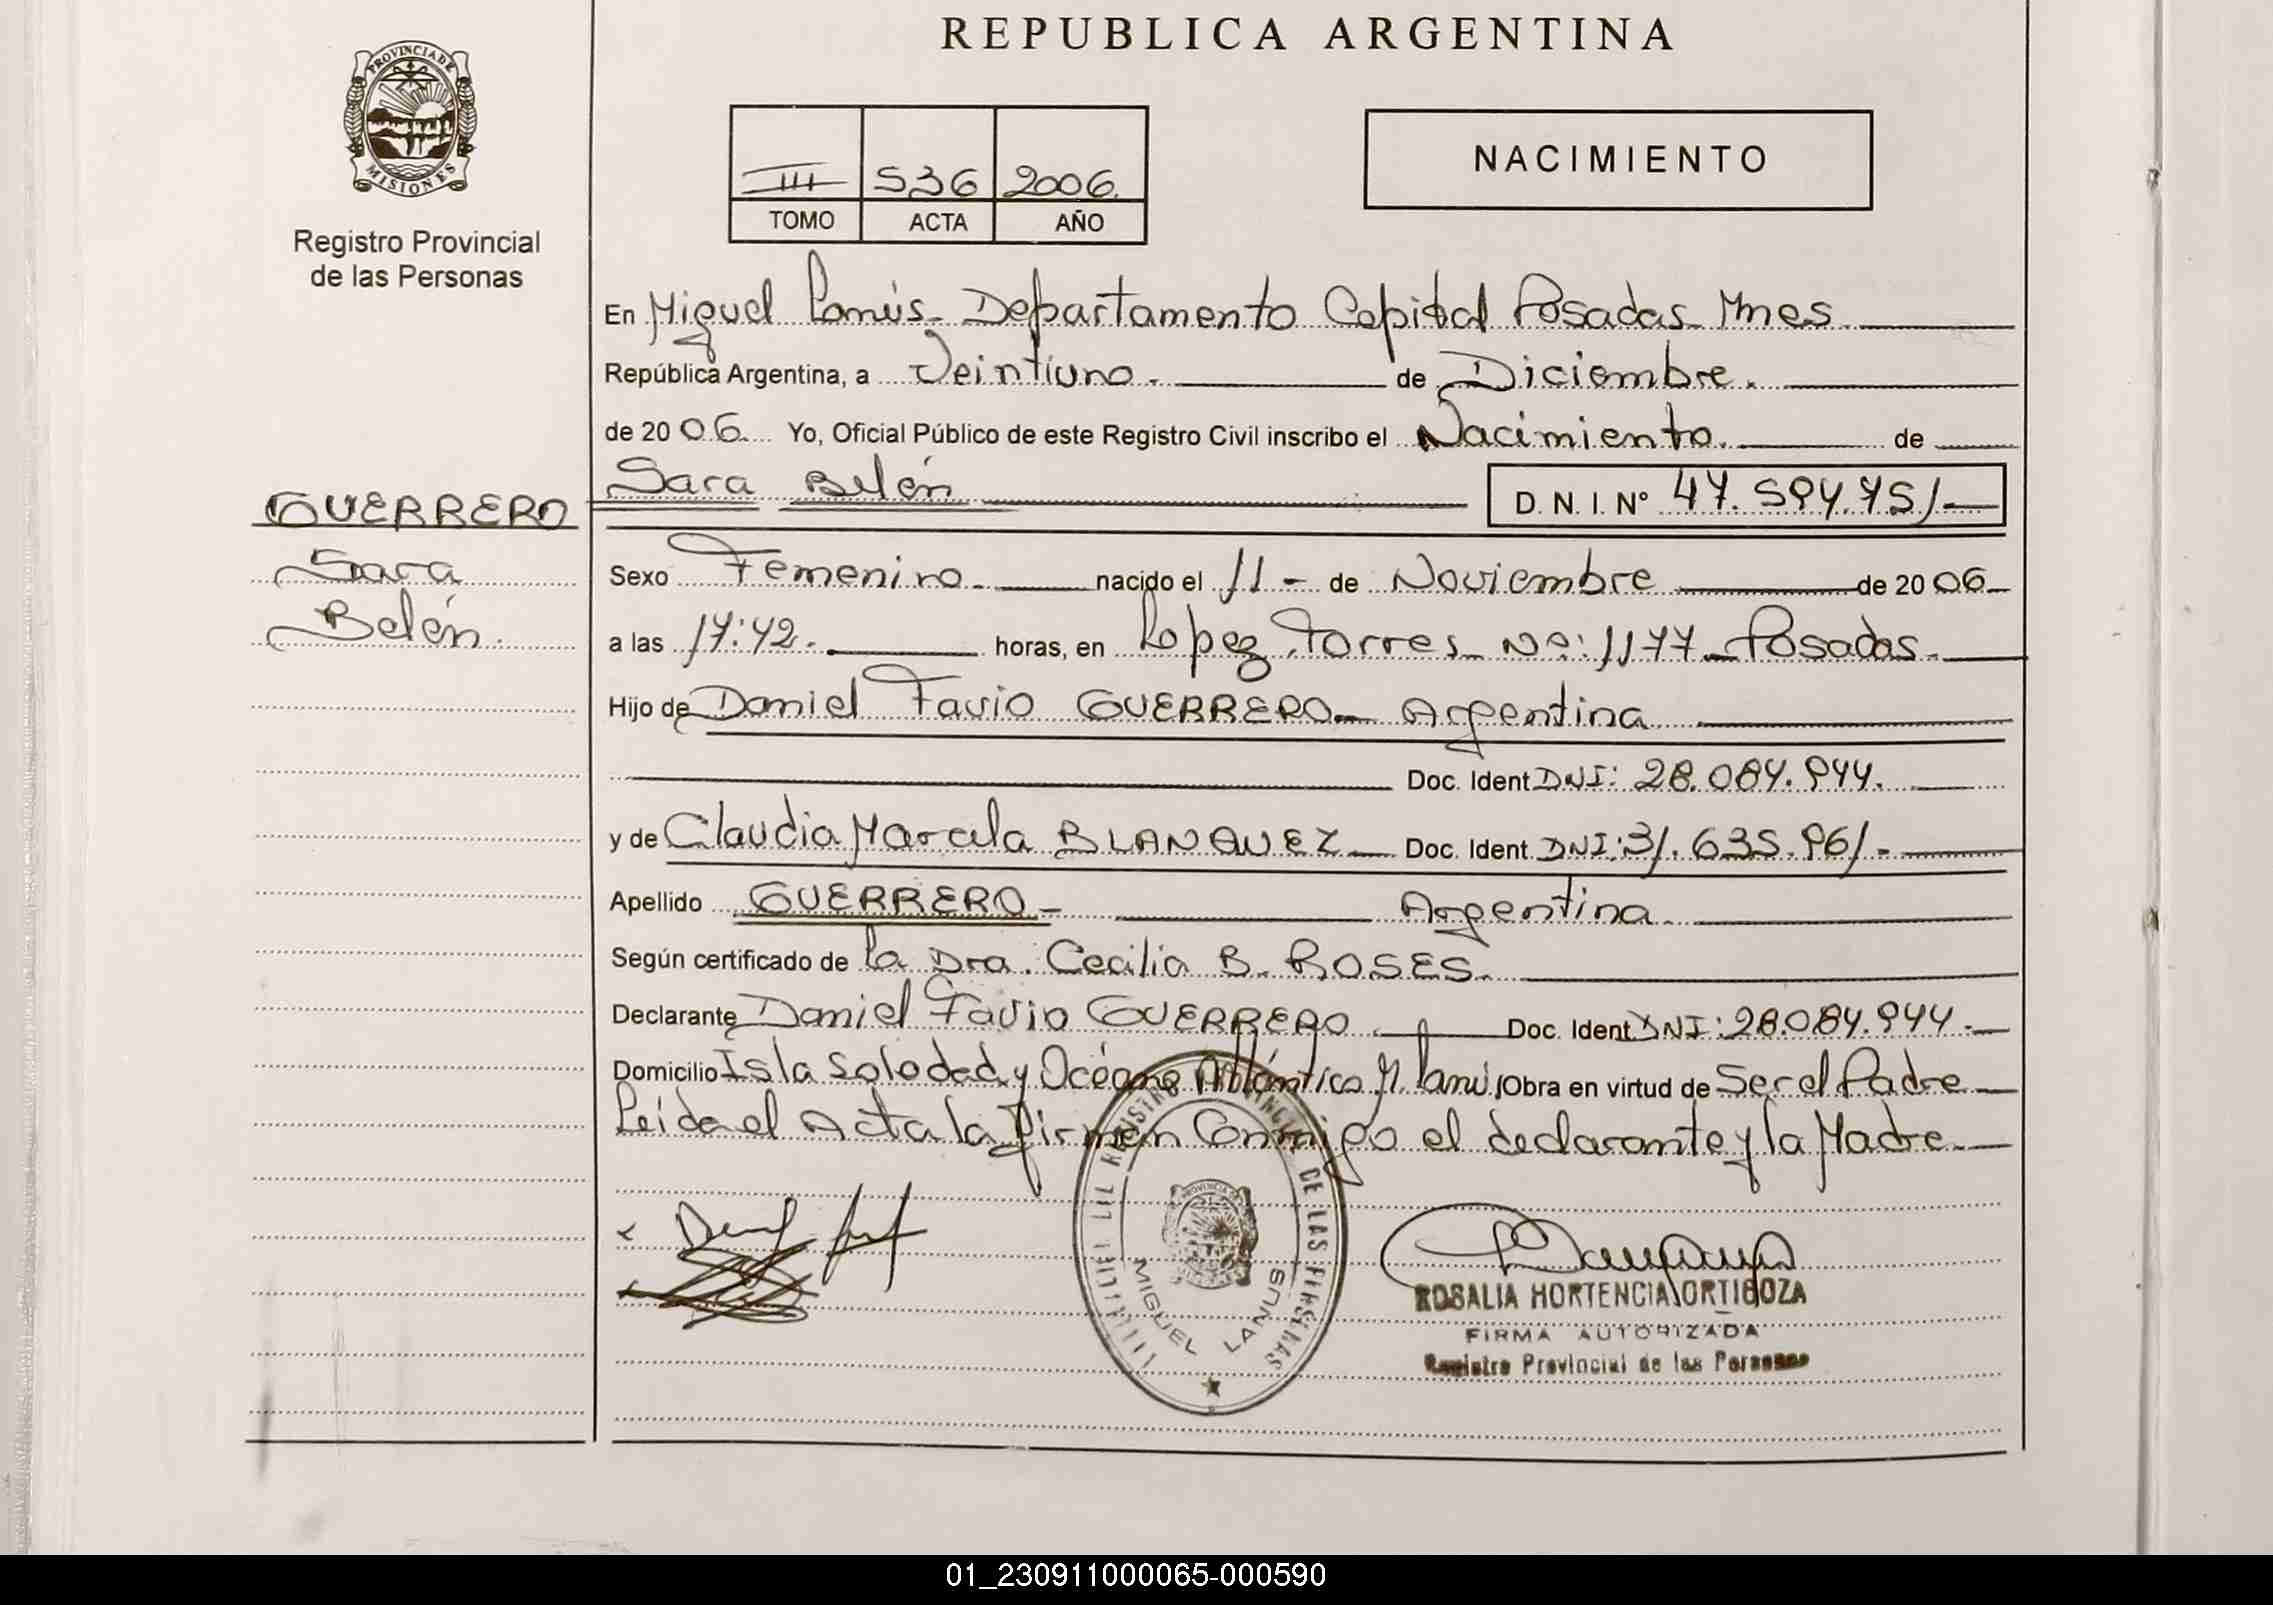 REPUBLICA ARGENTINA
PROVINCIA DE
MISIONES
Registro Provincial
de las Personas
III 536 2006.
TOMO ACTA AÑO
NACIMIENTO
En Miguel Lanús - Departamento Capital Posadas - Mnes
República Argentina, a Veintiuno. de Diciembre.
de 2006. Yo, Oficial Público de este Registro Civil inscribo el Nacimiento. de
Sara Belén D. N. I. Nº 47.594.751-
GUERRERO
Sara
Belén.
Sexo Femenino. nacido el 11 - de Noviembre de 2006
a las 17:42. horas, en Lopez Torres Nº: 1177 - Posadas.
Hijo de Daniel Favio GUERRERO - Argentina
Doc. Ident DNI: 28.084.944.
y de Claudia Marcela BLANQUEZ Doc. Ident. DNI: 31.635.961.-
Apellido GUERRERO - Argentina
Según certificado de la Dra. Cecilia B. ROSES.
Declarante Daniel Favio GUERRERO Doc. Ident DNI: 28.084.944.-
Domicilio Isla Soledad y Océano Atlántico M. Lanús Obra en virtud de Ser el Padre
Leída el Acta la firman Conmigo el declarante y la Madre.
REGISTRO PROVINCIAL DE LAS PERSONAS
MIGUEL LANUS
ROSALIA HORTENCIA ORTIGOZA
FIRMA AUTORIZADA
Registro Provincial de las Personas
01_230911000065-000590